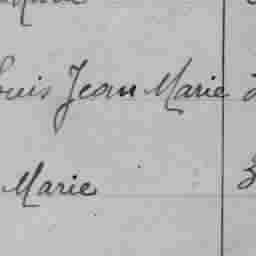 ouis Jean Marie
Marie 3